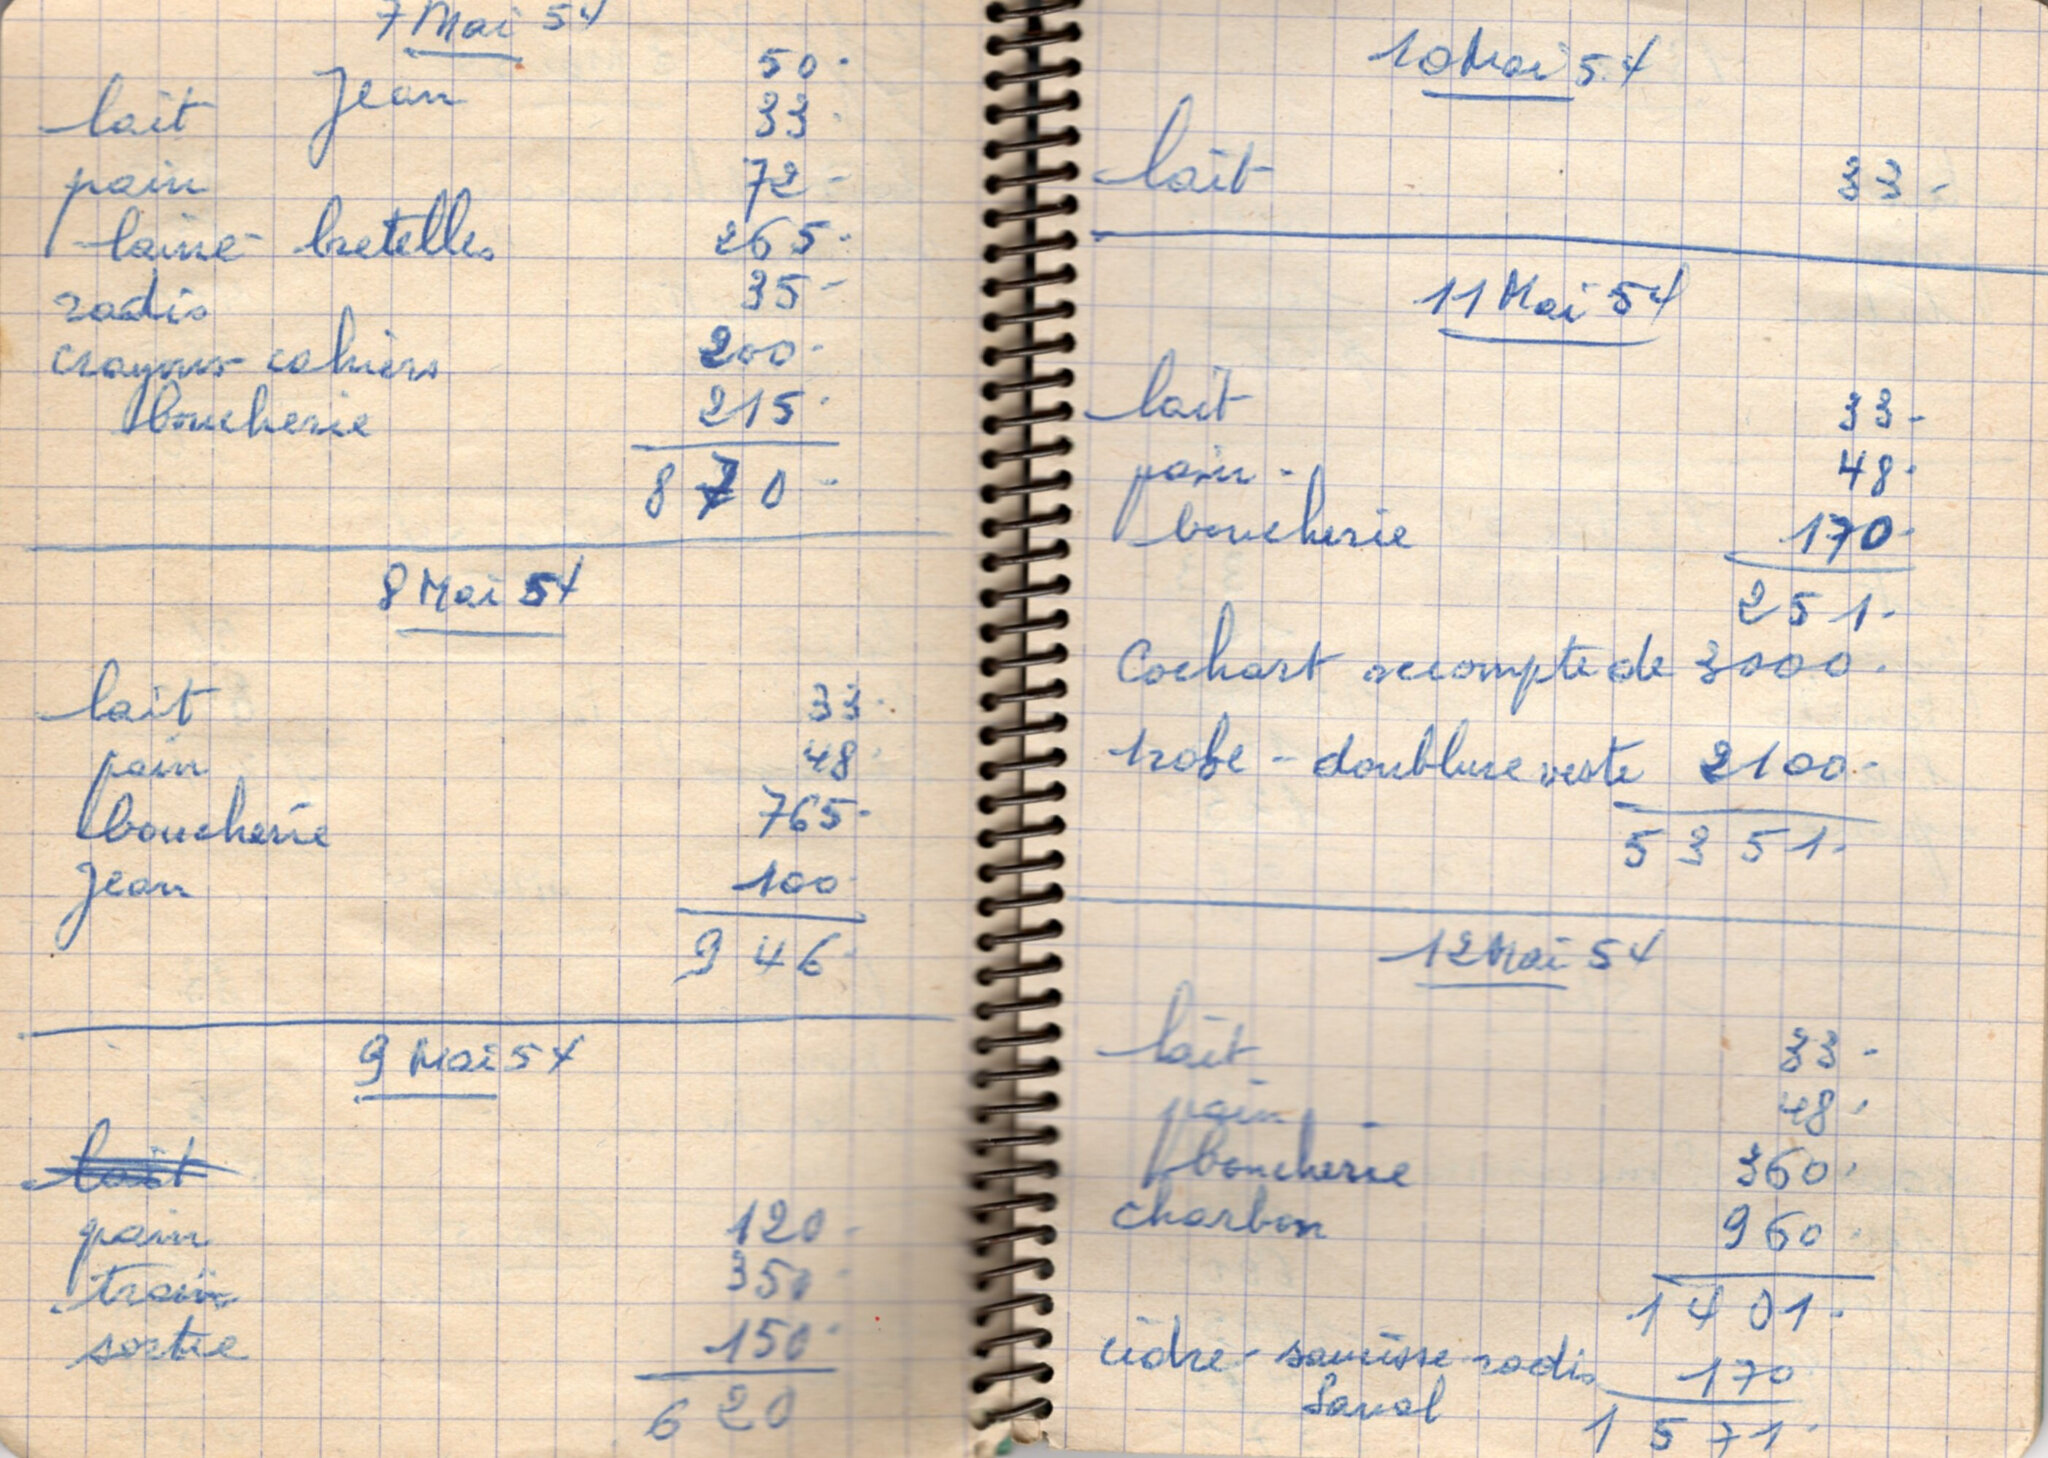 7 Mai 54
Jean 50-
lait 33-
pain 72-
laine - bretelles 265-
radis 35-
crayons cahiers 200-
boucherie 215-
870-
8 Mai 54
lait 33-
pain 48-
boucherie 765-
Jean 100-
946-
9 Mai 54
lait
pain 120-
train 350-
sortie 150-
620
10 Mai 54
lait 33-
11 Mai 54
lait 33-
pain - 48-
boucherie 170-
251-
Cochart accompte de 3000-
robe - doublure veste 2100-
5351-
12 Mai 54
lait 33-
pain 48-
boucherie 360-
charbon 960-
1401-
cidre - saucisse radis 170
1571-